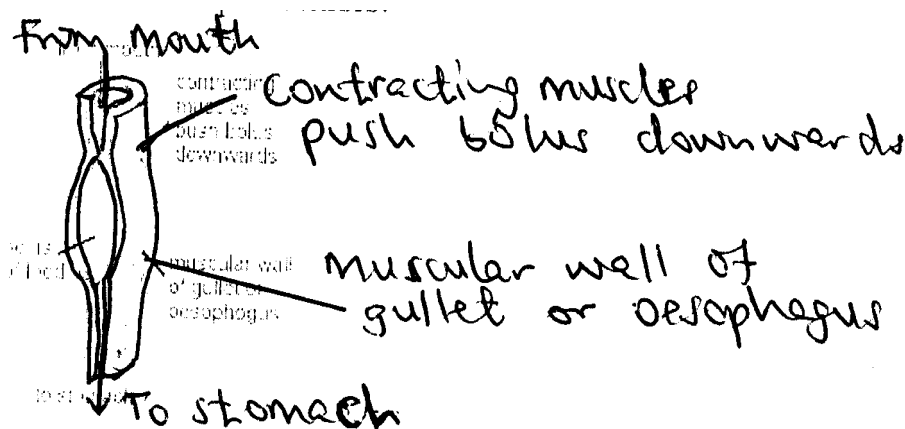 From mouth
contracting
muscles
push bolus
downwards
Contracting muscles
push bolus downwards
muscular wall
of gullet or
oesophogus
muscular wall of
gullet or oesophagus
To stomach